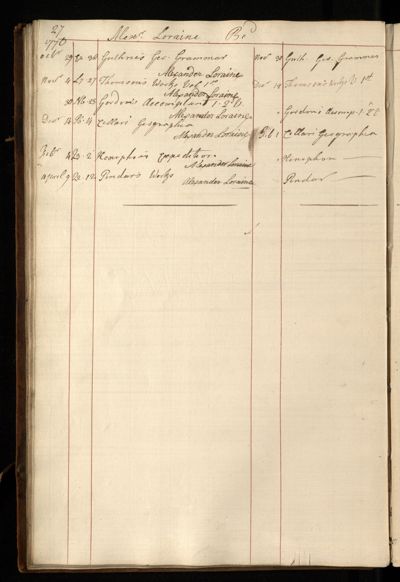 27
1770 Alexr. Loraine Bd
Octr 29 Guthrie's Geo: Grammar Novr 30 Guth. Geo. Grammar
Alexander Loraine
Novr 4 27 Thomson's Works Vol 1st Decr 14 Thomson's Works V 1st
Alexander Loraine
30 Gordon's Accomptant 1. 2d. Gordon's Accomp. 1
Alexander Loraine
Decr 14 4 Cellari Geographia Feb 1 Cellari Geographia
Alexander Loraine
Febr 4 2 Xenophon's Expedition Xenophon
Alexander Loraine
April 9 12 Pindar's Works Pindar
Alexander Loraine